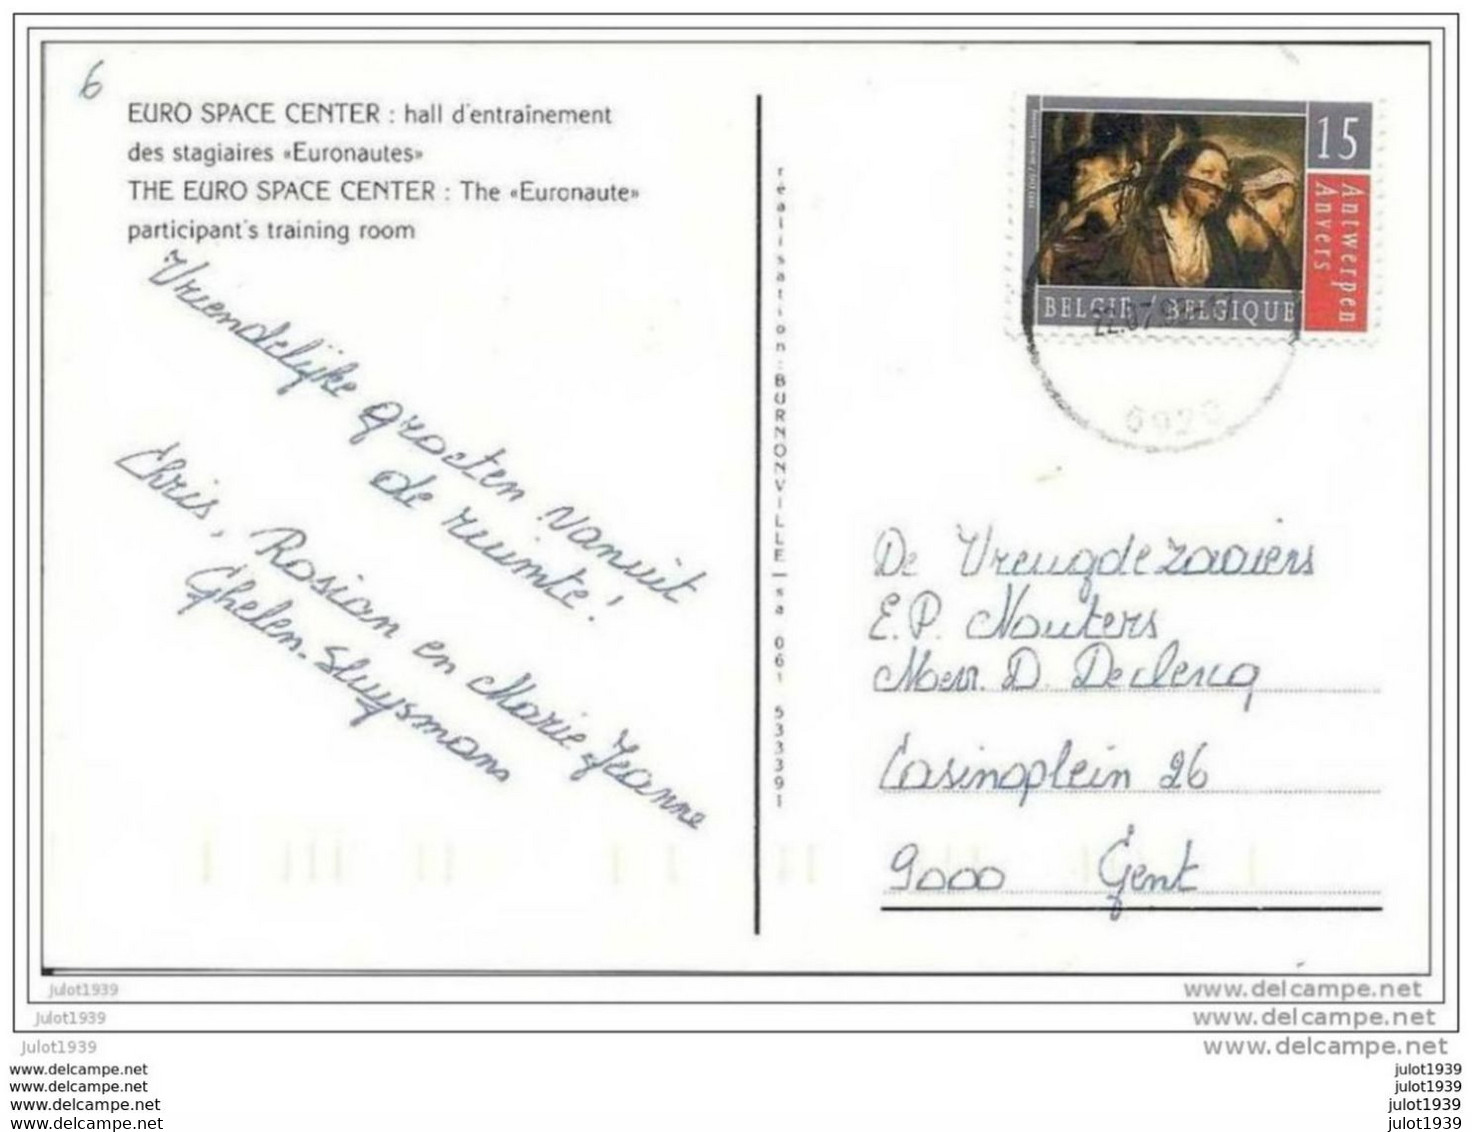 6
EURO SPACE CENTER : hall d'entraînement
des stagiaires «Euronautes»
THE EURO SPACE CENTER : The «Euronaute»
participant's training room
Vriendelijke groeten vanuit
de ruimte!
Chris, Rosian en Marie Jeanne
Ghelen-Sluysmans
réalisation : BURNONVILLE sa 061 533391
15
Antwerpen
Anvers
BELGIE / BELGIQUE
22.07.9
6920
De Vreugdezaaiers
E.P. Wouters
Mevr. D. Declercq
Casinoplein 26
9000 Gent
julot1939
www.delcampe.net
julot1939
www.delcampe.net
julot1939
www.delcampe.net
www.delcampe.net
julot1939
www.delcampe.net
julot1939
www.delcampe.net
julot1939
www.delcampe.net
julot1939